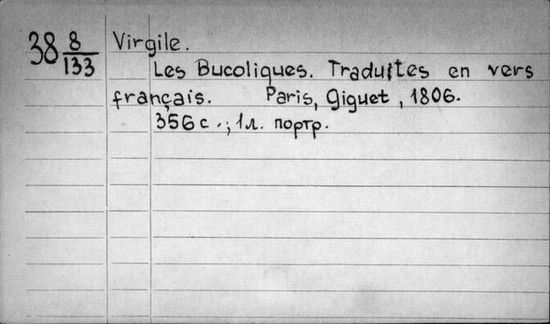 38 8/133 Virgile.
Les Bucoliques. Traduites en vers
français. Paris, Giguet, 1806.
356 с.; 1 л. портр.